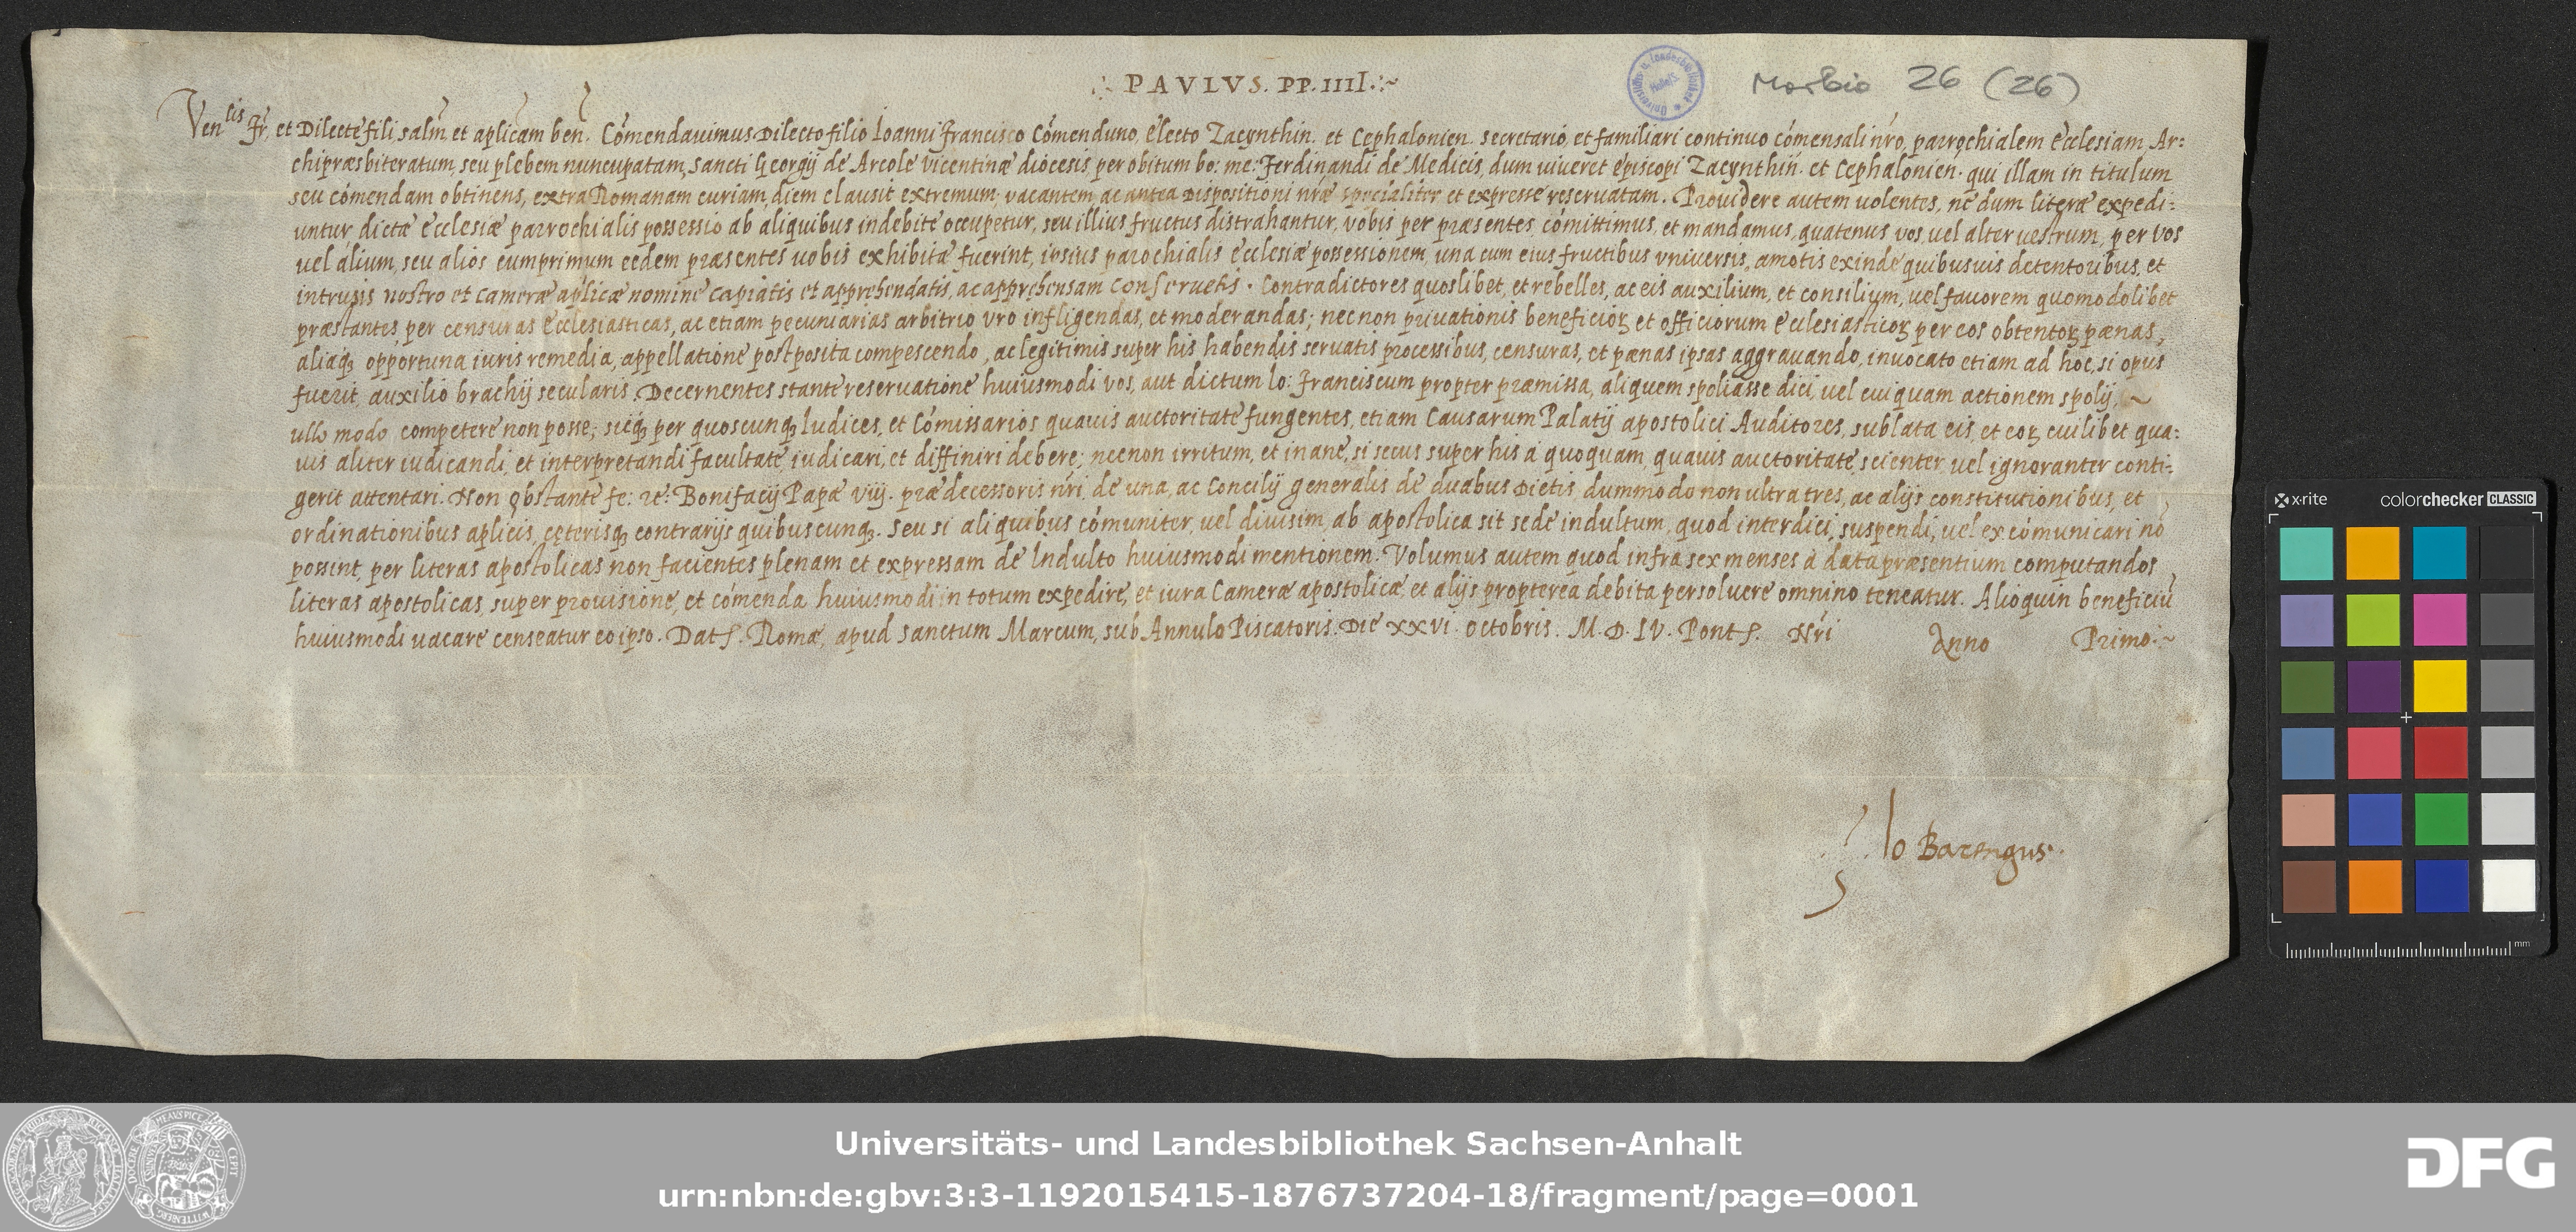 PAVLVS. PP. IIII.
Morbio 26 (26)
Ven lis fr, et Dilecte fili, salm, et aplicam ben. Comendauimus Dilecto filio Ioanni Francisco Comenduno, electo Zacynthin. et Cephalonien. secretario, et familiari continuo comensali nro, parrochialem ecclesiam Ar:
chipræsbiteratum, seu plebem nuncupatam, sancti Georgij de Arcole vicentinæ diocesis, per obitum bo: me: Ferdinandi de Medicis, dum uiueret episcopi Zacynthin. et Cephalonien. qui illam in titulum
seu comendam obtinens, extra Romanam curiam, diem clausit extremum, vacantem, ac antea Dispositioni nræ specialiter et expresse reseruatam. Prouidere autem uolentes, ne dum literæ expedi:
untur, dictæ ecclesiæ parrochialis possessio ab aliquibus indebite occupetur, seu illius fructus distrahantur, vobis per præsentes, comittimus, et mandamus, quatenus vos, uel alter uestrum, per vos
uel alium, seu alios cumprimum eedem præsentes uobis exhibitæ fuerint, ipsius parochialis ecclesiæ possessionem, una cum eius fructibus vniuersis, amotis exinde quibusuis detentoribus, et
intrusis nostro et cameræ aplicæ nomine capiatis et apprehendatis, ac apprehensam conseruetis. Contradictores quoslibet, et rebelles, ac eis auxilium, et consilium, uel fauorem quomodolibet
præstantes, per censuras ecclesiasticas, ac etiam pecuniarias arbitrio vro infligendas, et moderandas; necnon priuationis beneficioꝝ et officiorum ecclesiasticoꝝ per eos obtentoꝝ pænas,
aliaqꝫ opportuna iuris remedia, appellatione postposita compescendo, ac legitimis super his habendis seruatis processibus, censuras, et pænas ipsas aggrauando, inuocato etiam ad hoc, si opus
fuerit, auxilio brachij secularis. Decernentes stante reseruatione huiusmodi vos, aut dictum Io: Franciscum propter præmissa, aliquem spoliasse dici, uel cuiquam actionem spolij,
ullo modo, competere non posse; sicqꝫ per quoscunqꝫ Iudices, et Comissarios quauis auctoritate fungentes, etiam Causarum Palatij apostolici Auditores, sublata eis, et eoꝝ cuilibet qua:
uis aliter iudicandi, et interpretandi facultate, iudicari, et diffiniri debere; necnon irritum, et inane, si secus super his a quoquam, quauis auctoritate, scienter, uel ignoranter conti:
gerit attentari. Non obstante fe: re: Bonifacij Papæ viij. prædecessoris nri, de una, ac Concilij generalis de duabus Dietis, dummodo non ultra tres, ac alijs constitutionibus, et
ordinationibus aplicis, cęterisqꝫ contrarijs quibuscunqꝫ. Seu si aliquibus comuniter, uel diuisim, ab apostolica sit sede indultum, quod interdici, suspendi, uel excomunicari nō
possint, per literas apostolicas non facientes plenam et expressam de Indulto huiusmodi mentionem. Volumus autem quod infra sex menses à data præsentium computandos
literas apostolicas, super prouisione, et comenda huiusmodi in totum expedire, et iura Cameræ apostolicæ, et alijs propterea debita persoluere omnino teneatur. Alioquin beneficiū
huiusmodi uacare censeatur eo ipso. Dat. Romæ, apud sanctum Marcum, sub Annulo Piscatoris. Die xxvi. octobris. M. D. LV. Pont. Nri Anno Primo
Io Barengus
x-rite colorchecker CLASSIC
mm
Universitäts- und Landesbibliothek Sachsen-Anhalt
urn:nbn:de:gbv:3:3-1192015415-1876737204-18/fragment/page=0001
DFG